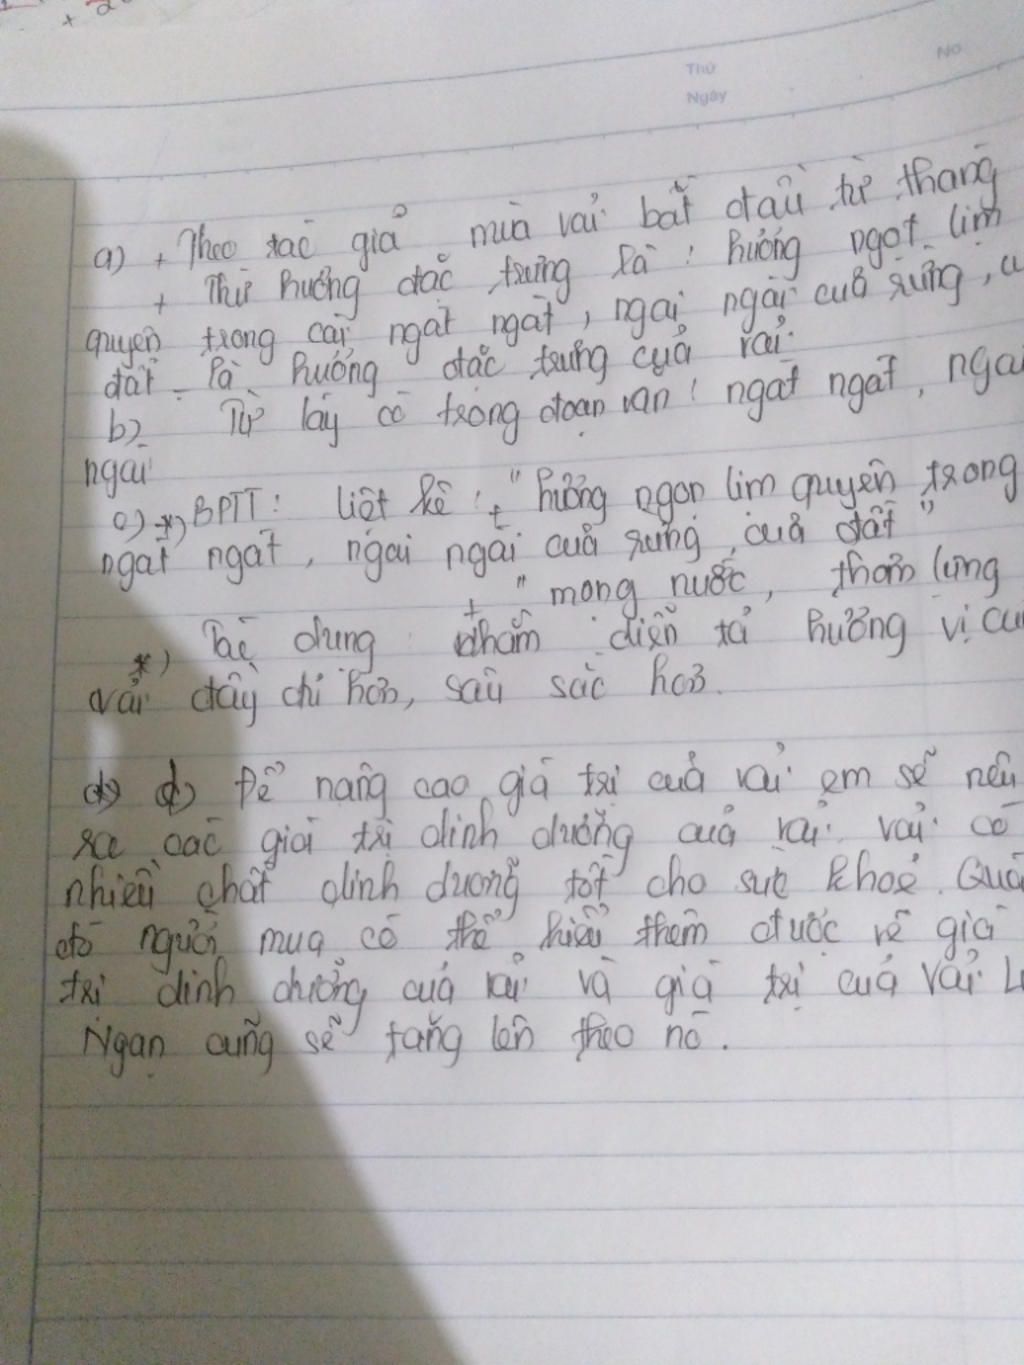 Thứ
No
Ngày
a) + Theo tác giả mùa vải bắt đầu từ tháng
+ Thứ hương đặc trưng là : hương ngọt lịm
quyện trong cái ngát ngát, ngai ngái của rừng,
đất là hương đặc trưng của vải.
b) Từ láy có trong đoạn văn : ngát ngát,
ngái
c) *) BPTT : liệt kê : + "hương ngon lịm quyện trong
ngát ngát, ngai ngái của rừng, của đất"
+ "mọng nước, thơm lừng
*) Tác dụng : nhằm diễn tả hương vị
vải đầy chi hơn, sâu sắc hơn.
d) d) Để nâng cao giá trị của vải em sẽ nêu
ra các giá trị dinh dưỡng của vải. vải có
nhiều chất dinh dưỡng tốt cho sức khoẻ. Qua
đó người mua có thể hiểu thêm được về giá
trị dinh dưỡng của vải và giá trị của vải
Ngạn cũng sẽ tăng lên theo nó.